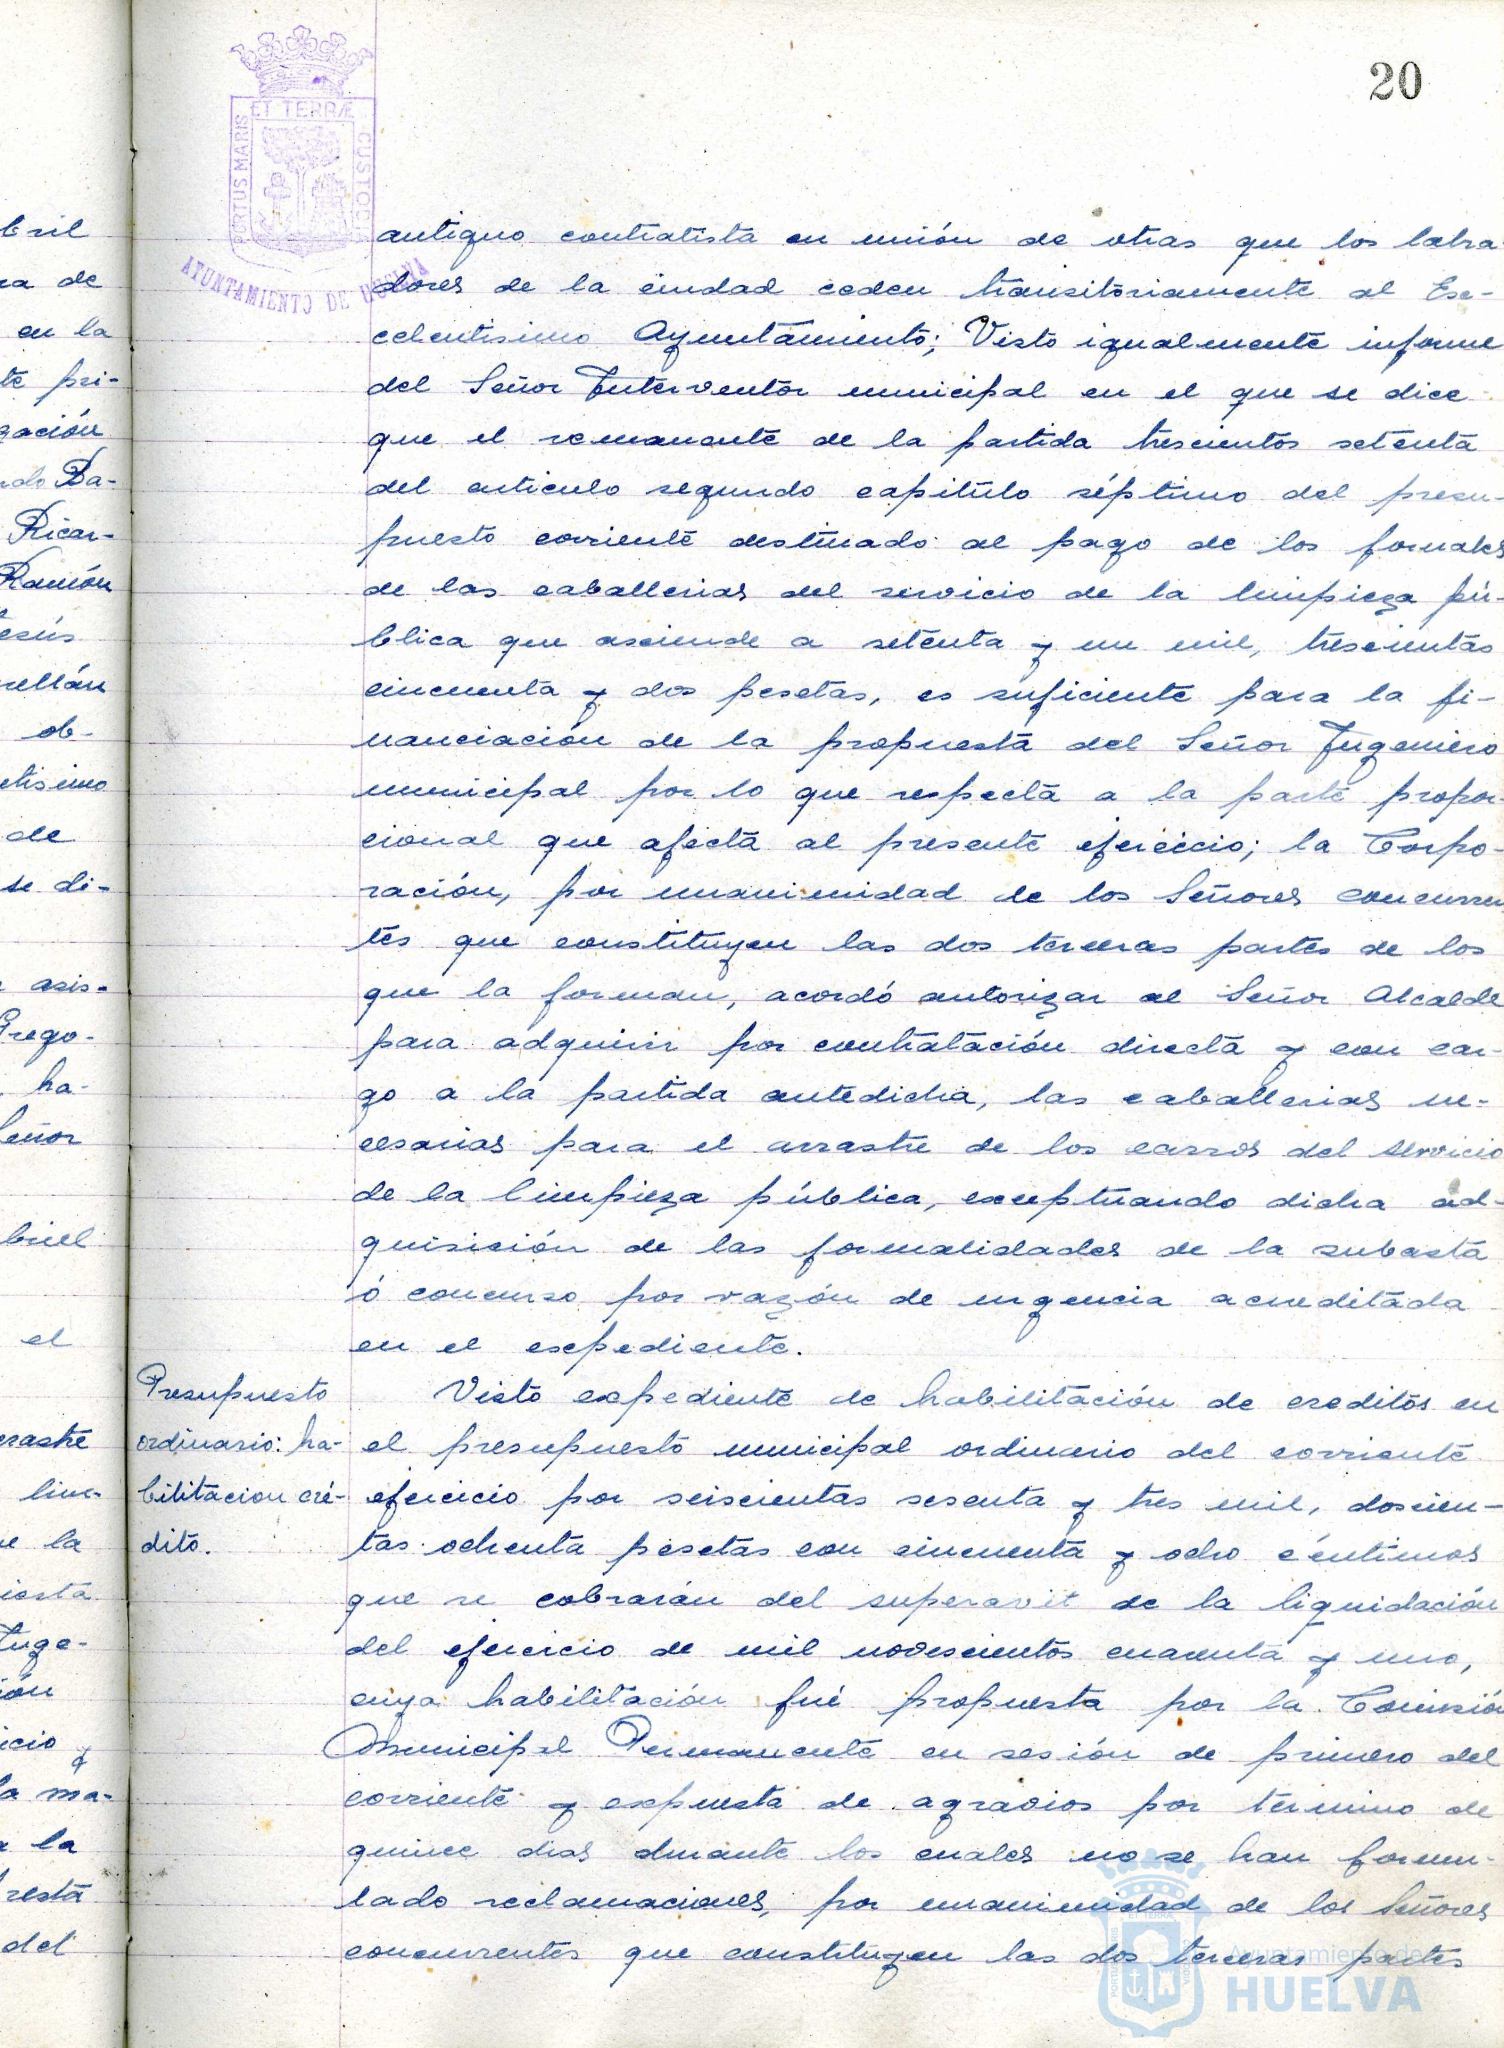 20
PORTUS MARIS ET TERRÆ CUSTODIA
AYUNTAMIENTO DE HUELVA
antiguo contratista en unión de otras que los labra-
dores de la ciudad ceden transitoriamente al Exc-
celentisimo Ayuntamiento; Visto igualmente informe
del Señor Interventor municipal en el que se dice
que el remanente de la partida trescientos setenta
del articulo segundo capitulo séptimo del presu-
puesto corriente destinado al pago de los jornales
de las caballerias del servicio de la limpieza pú-
blica que asciende a setenta y un mil, trescientas
cincuenta y dos pesetas, es suficiente para la fi-
nanciación de la propuesta del Señor Ingeniero
municipal por lo que respecta a la parte propor-
cional que afecta al presente ejercicio; la Corpo-
ración, por unanimidad de los Señores concurren
tes que constituyen las dos terceras partes de los
que la forman, acordó autorizar al Señor Alcalde
para adquirir por contratación directa y con car-
go a la partida antedicha, las caballerias ne-
cesarias para el arrastre de los carros del servicio
de la limpieza pública, exceptuando dicha ad-
quisición de las formalidades de la subasta
ó concurso por razón de urgencia acreditada
en el expediente.
Presupuesto
ordinario: ha-
bilitacion cré-
dito.
Visto expediente de habilitación de creditos en
el presupuesto municipal ordinario del corriente
ejercicio por seiscientas sesenta y tres mil, doscien-
tas ochenta pesetas con cincuenta y ocho céntimos
que se cobrarán del superavit de la liquidación
del ejercicio de mil novescientos cuarenta y uno,
cuya habilitación fué propuesta por la Comisión
Municipal Permanente en sesión de primero del
corriente y expuesta de agravios por termino de
quince dias durante los cuales no se han formu-
lado reclamaciones, por unanimidad de los Señores
concurrentes que constituyen las dos terceras partes
bril
ra de
en la
te pri-
gación
rdo Ba-
Ricar-
Ramón
esús
rellán
ob-
etisimo
de
se di-
asis-
Grego-
ha-
eñor
briel
el
rrastre
lim-
e la
iesta
Inge-
ión
icio y
a ma-
a la
resta
del
Ayuntamiento de
HUELVA